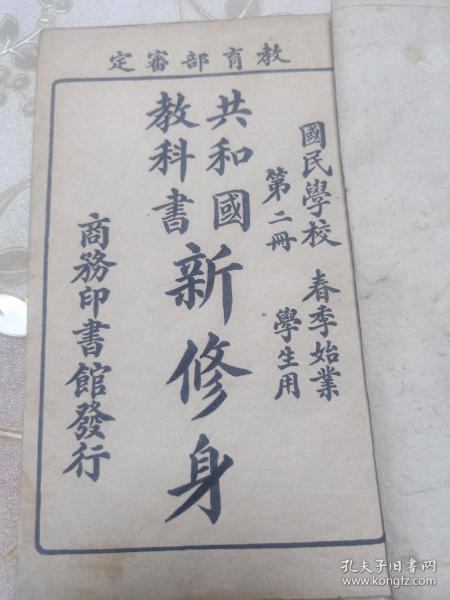 教育部審定
國民學校 春季始業
第二冊 學生用
共和國
教科書
新修身
商務印書館發行
孔夫子旧书网
www.kongfz.com